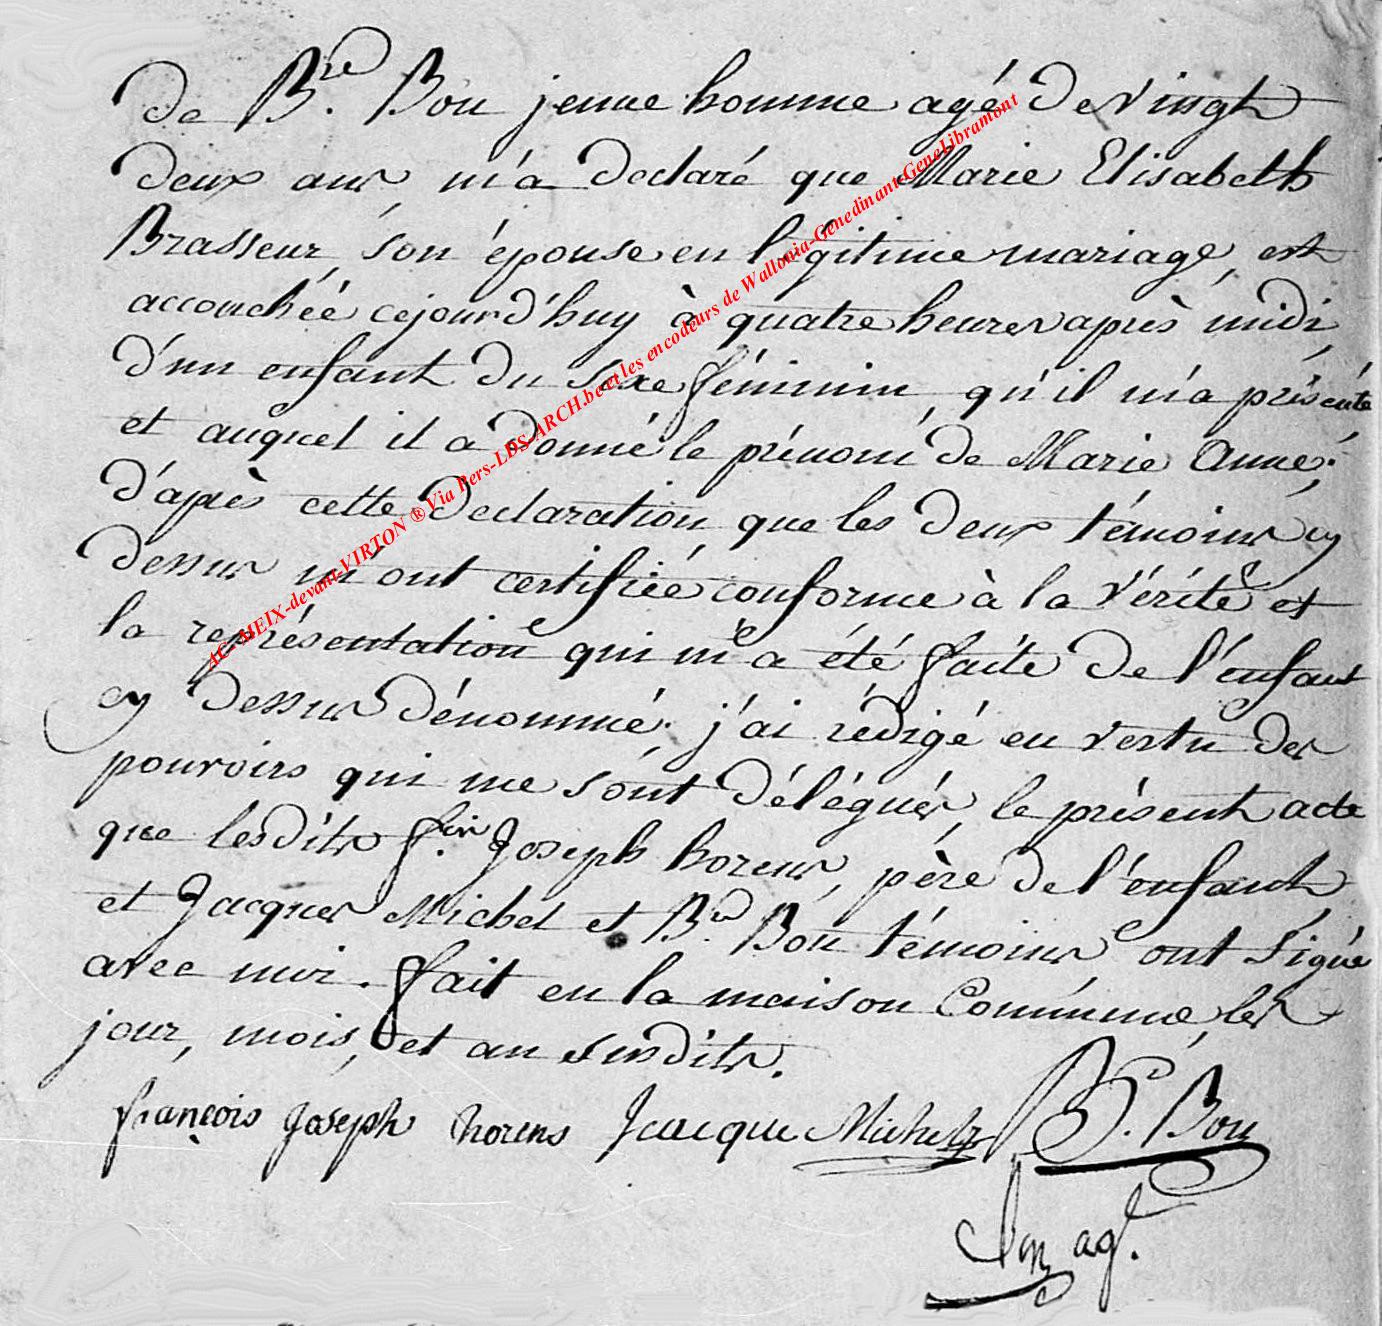 de B.re Bon jeune homme agé de vingt
deux ans, m'a declaré que Marie Elisabeth
Brasseur, son épouse en légitime mariage, est
accouchée cejourd'huy à quatre heures après midi,
d'un enfant du sexe féminin, qu'il m'a présenté
et auquel il a donné le prénom de Marie Anne;
d'après cette declaration, que les deux témoins cy
dessus m'ont certifiée conforme à la vérité et
la représentation qui m'a été faite de l'enfant
cy dessus dénommé; j'ai rédigé en vertu des
pouvoirs qui me sont délégués, le présent acte
que lesdits f.ois Joseph horens, père de l'enfant
et Jacques Michel et B.re Bon témoins ont signé
avec moi. fait en la maison Commune, les
jour, mois, et an susdits.
françois Joseph horens Jacque Michel B. Bon
ag.t
AC-MEIX-devant-VIRTON ® Via Pers-LDS-ARCH.be et les encodeurs de Wallonia-Genedinant-GeneLibramont